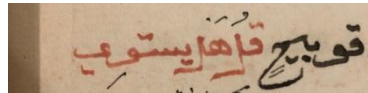 توبيخ قل هل يستوي